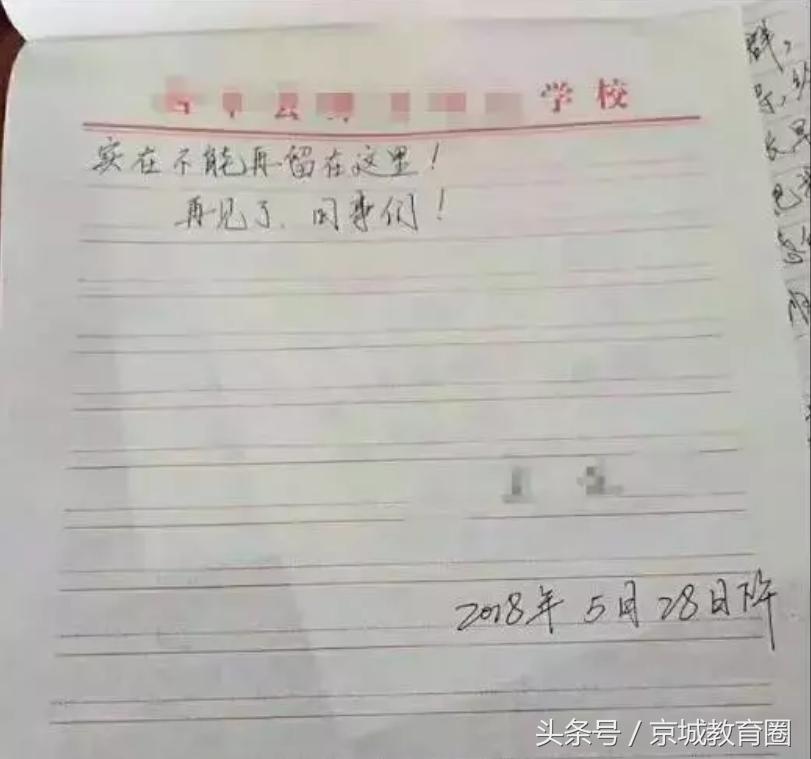 学校
实在不能再留在这里！
再见了、同事们！
2018年 5月 28日下午
头条号 / 京城教育圈